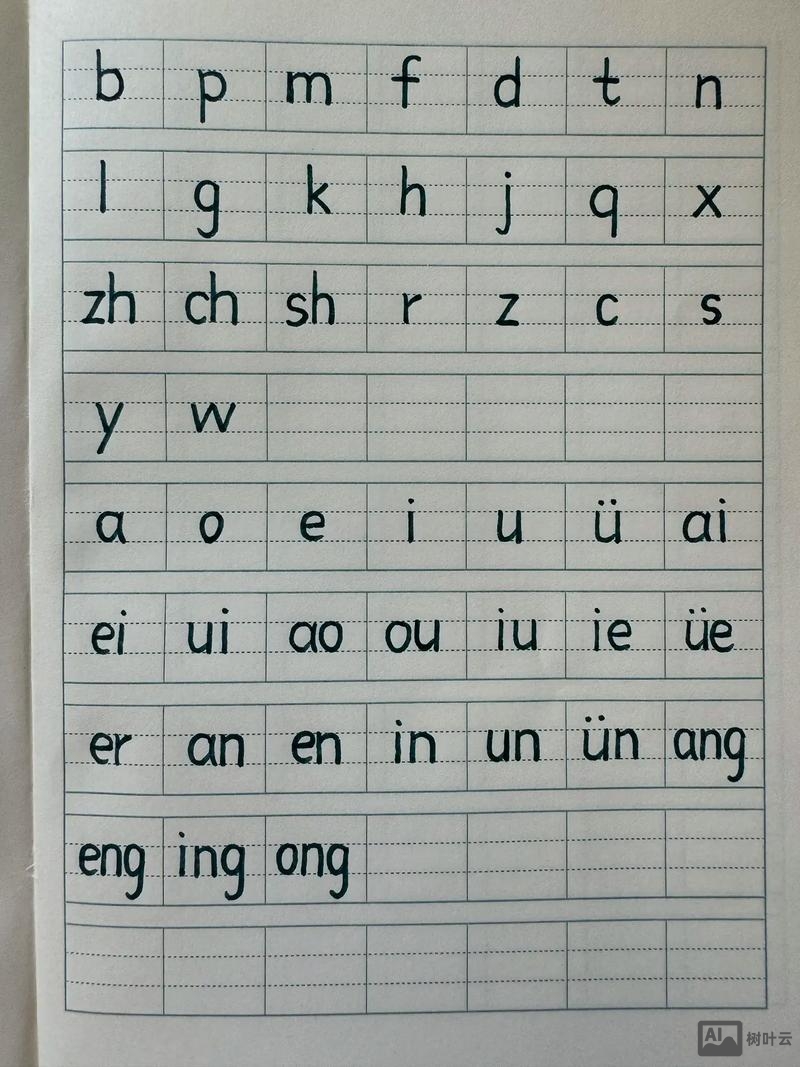 b p m f d t n
l g k h j q x
zh ch sh r z c s
y w
a o e i u ü ai
ei ui ao ou iu ie üe
er an en in un ün ang
eng ing ong
AI 树叶云